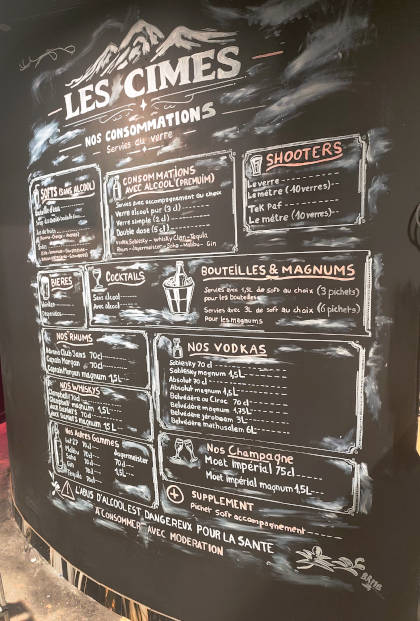 LES CIMES
NOS CONSOMMATIONS
Servies au verre
SOFTS (SANS ALCOOL)
CONSOMMATIONS
AVEC ALCOOL (PREMIUM)
Servies avec accompagnement au choix
Verre alcool pur (3 cl)
Verre simple (2 cl)
Double dose (5 cl)
Vodka Sobiesky - Whisky Clan - Tequila
Rhum - Jägermeister - Soho - Malibu - Gin
SHOOTERS
Le verre
Le mètre (10 verres)
TeK Paf
Le mètre (10 verres)
BIERES
COCKTAILS
Sans alcool
Avec alcool
BOUTEILLES & MAGNUMS
Servies avec 1,5L de soft au choix (3 pichets)
pour les bouteilles
Servies avec 3L de soft au choix (6 pichets)
Pour les magnums
NOS RHUMS
Havana Club 3ans 70cl
Captain Morgan 70cl
Captain Morgan magnum 1,5L
NOS WHISKYS
Clan Campbell 70cl
magnum 1,5L
70cl
magnum 1,5L
Nos Autres Gammes
Get 27 70cl
Malibu 70cl
Soho 70cl
Gin 70cl
Tequila 70cl
Jagermeister
70cl
1,5L
NOS VODKAS
Sobiesky 70cl
Sobiesky magnum 1,5L
Absolut 70cl
Absolut magnum 1,5L
Belvédère ou Ciroc 70cl
Belvédère magnum 1,75L
Belvédère jéroboam 3L
Belvédère mathusalem 6L
Nos Champagne
Moet Impérial 75cl
Moet impérial magnum 1,5L
SUPPLEMENT
Pichet Soft accompagnement
L'ABUS D'ALCOOL EST DANGEREUX POUR LA SANTE
A CONSOMMER AVEC MODERATION